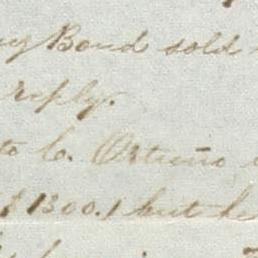 Bond sold
reply.
to C. Ortuño
$1300.) but he